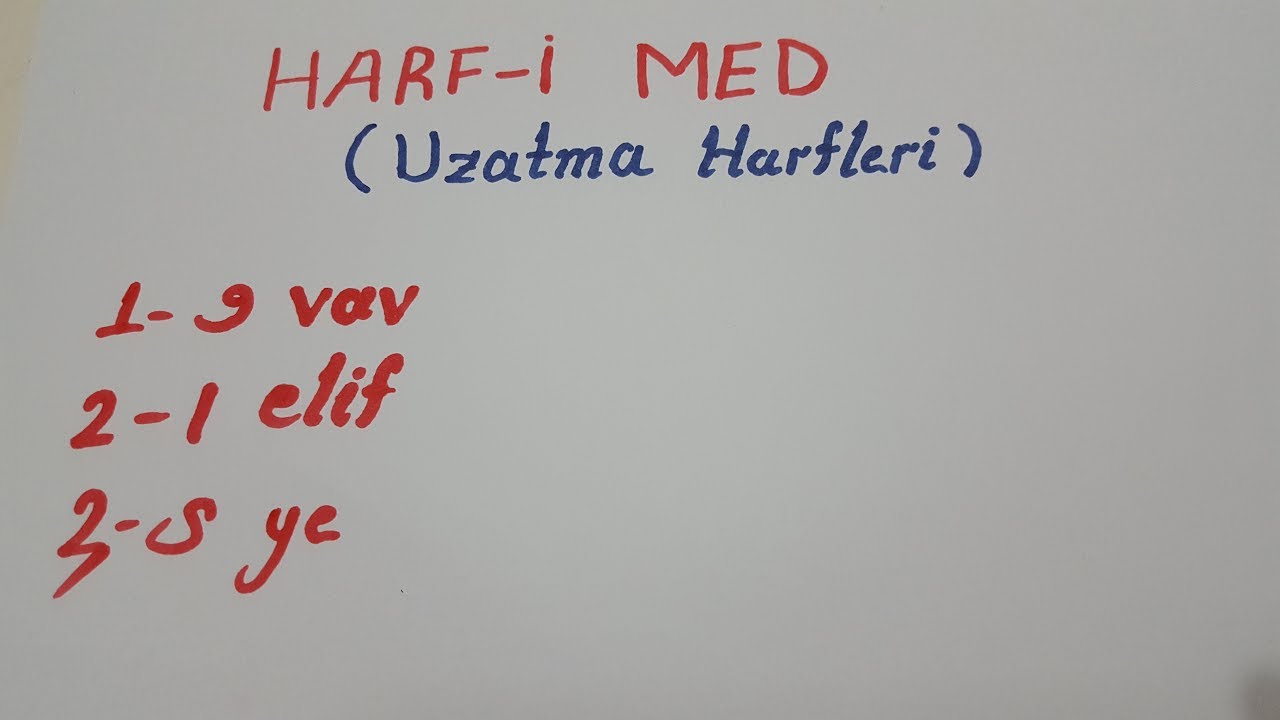 HARF-İ MED
(Uzatma Harfleri)
1- و vav
2- ا elif
3- ى ye